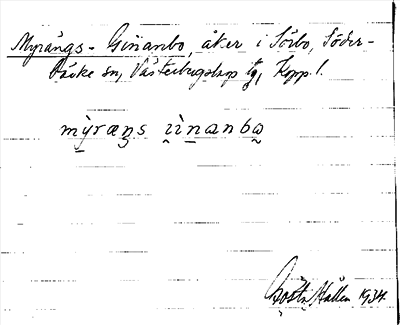 Myrängs-Ginanbo, åker i Sörbo, Söder-
bärke sn, Västerbergslags tg, Kopp. l.
mỳræŋs ɪìnanbɷ
Gösta Hallen 1934.